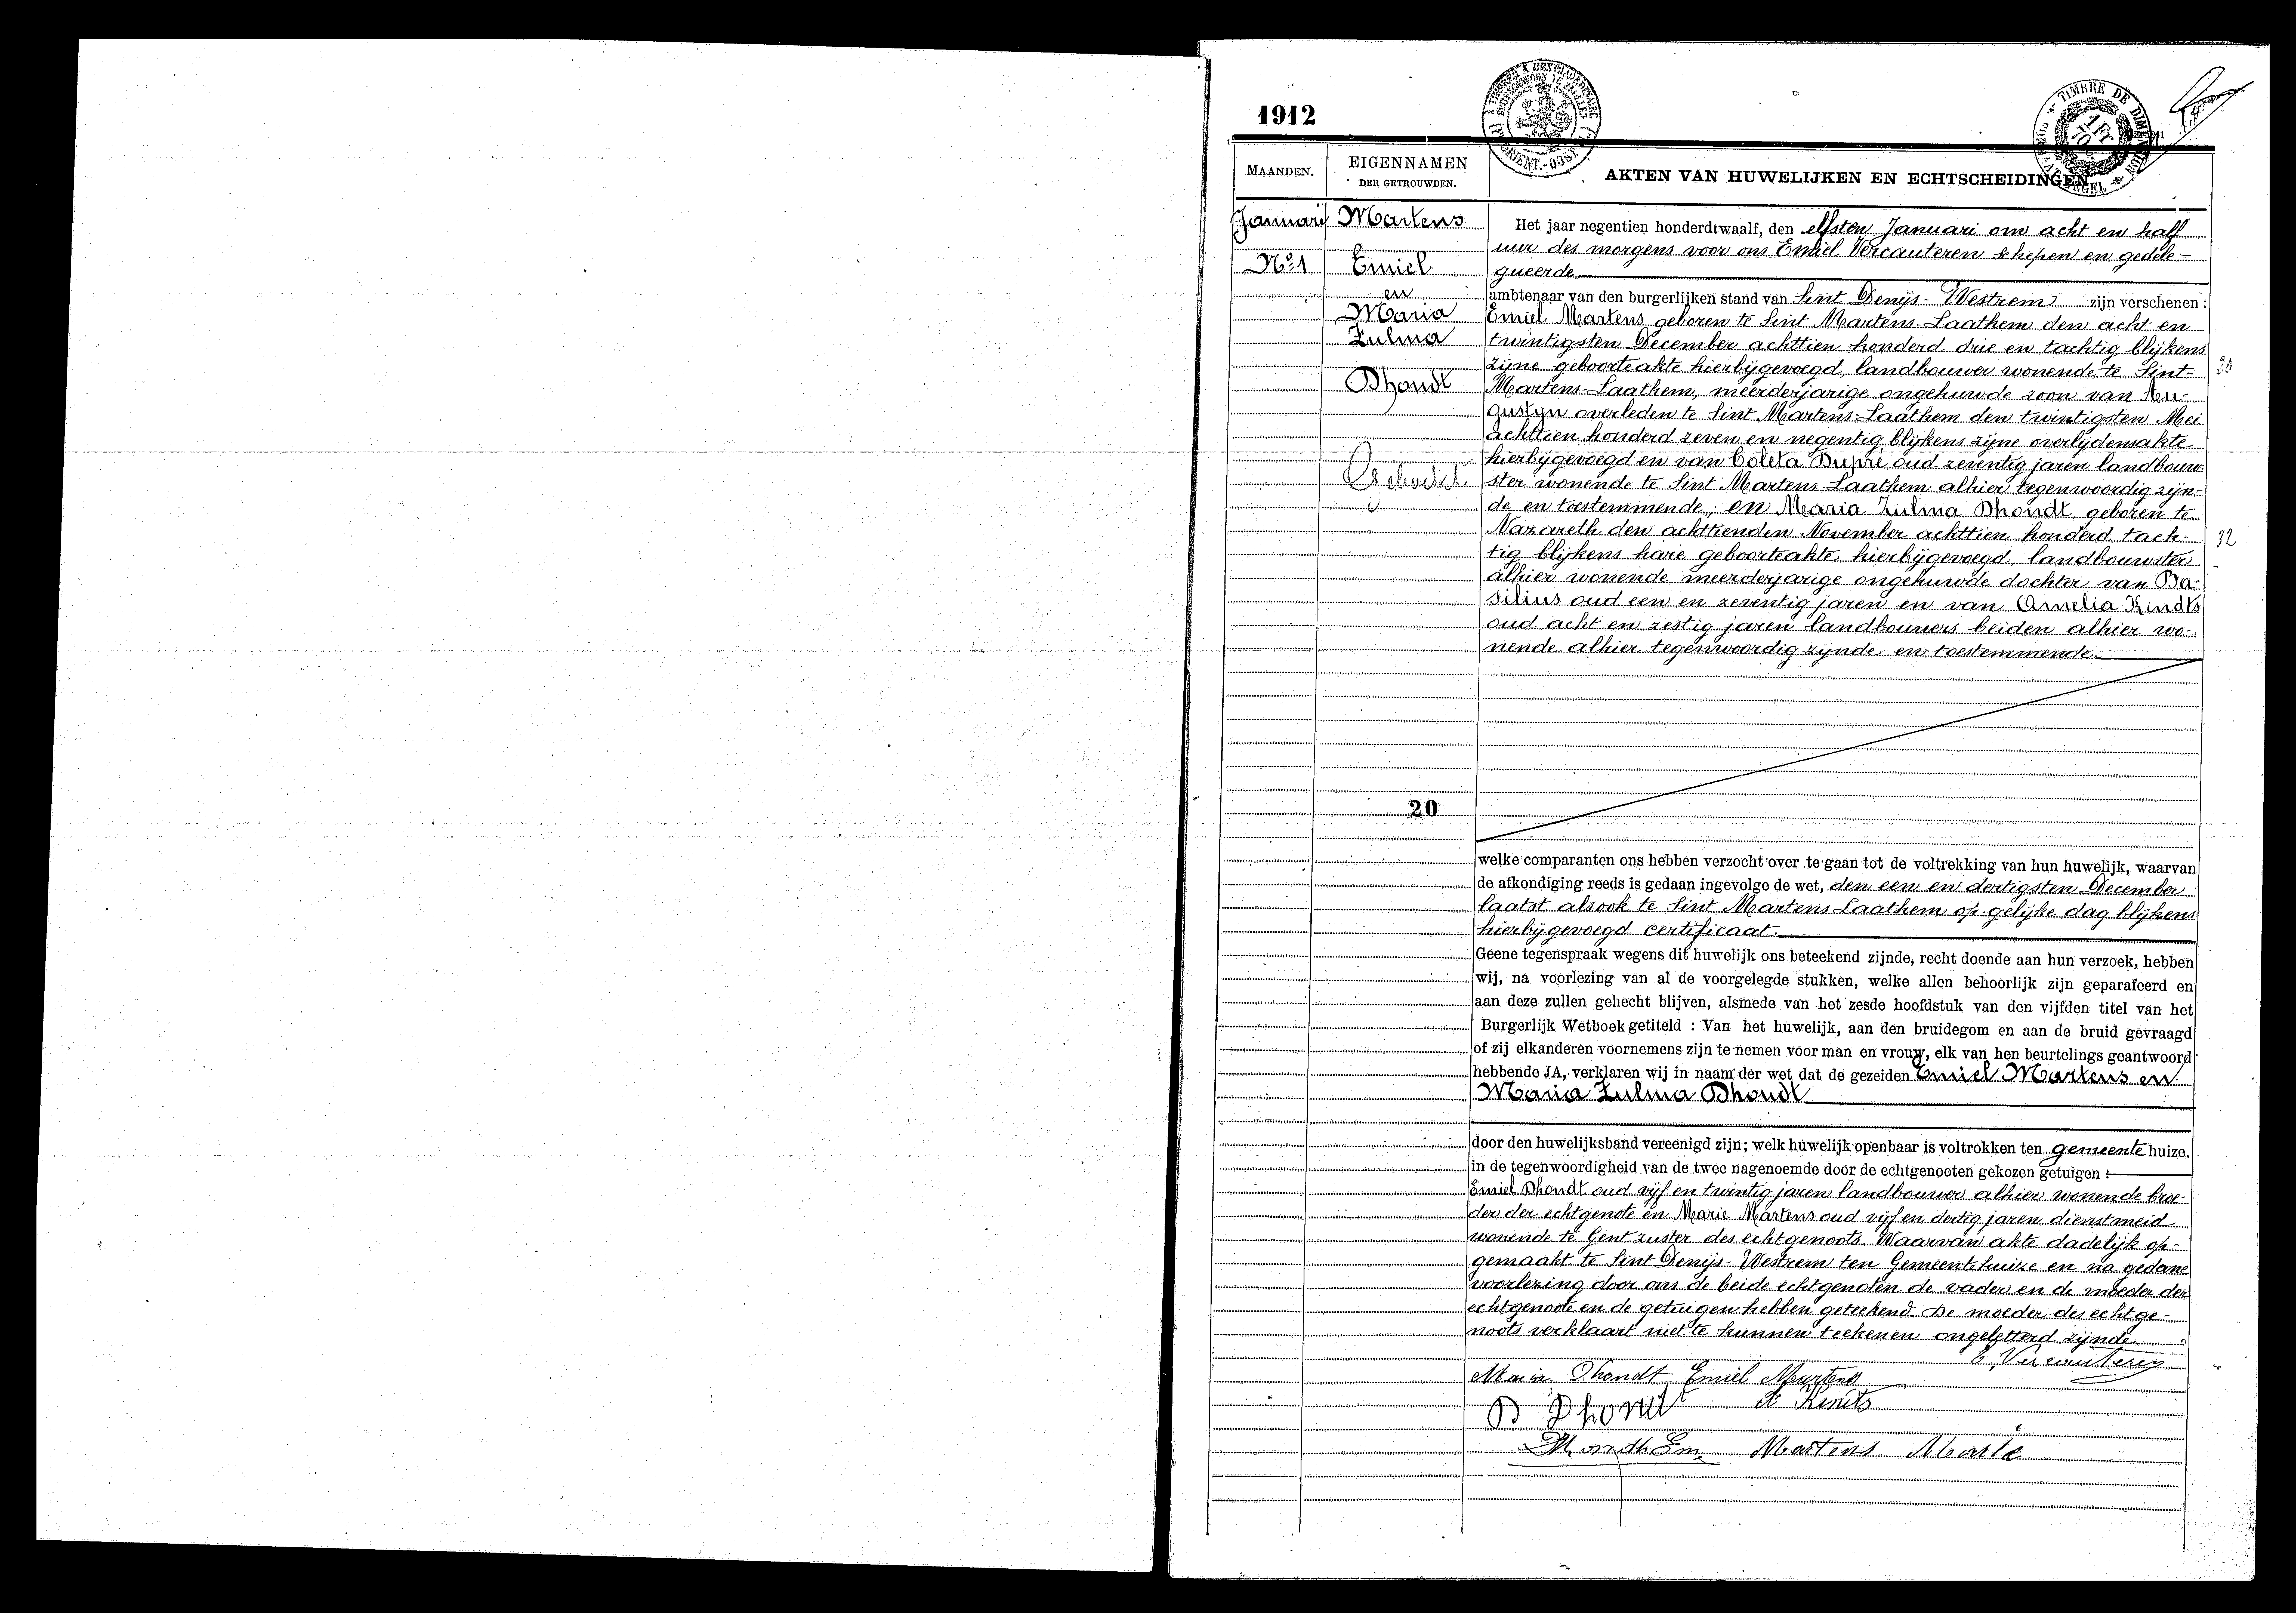 1912
TIMBRE DE DIMENSION
1 Fr
70 c
MAANDEN.
EIGENNAMEN
DER GETROUWDEN.
AKTEN VAN HUWELIJKEN EN ECHTSCHEIDINGEN
Januari
No. 1
Martens
Emiel
en
Maria
Zulma
Dhondt
Het jaar negentien honderdtwaalf, den elfsten Januari om acht en half
uur des morgens voor ons Emiel Vercauteren schepen en gedele-
gueerde
ambtenaar van den burgerlijken stand van Sint Denijs-Westrem zijn verschenen :
Emiel Martens geboren te Sint Martens-Laathem den acht en
twintigsten December achttien honderd drie en tachtig blijkens
zijne geboorteakte hierbijgevoegd, landbouwer wonende te Sint-
Martens-Laathem, meerderjarige ongehuwde zoon van Au-
gustyn overleden te Sint Martens-Laathem den twintigsten Mei
achttien honderd zeven en negentig blijkens zijne overlijdensakte
hierbijgevoegd en van Coleta Dupré oud zeventig jaren landbouw-
ster wonende te Sint Martens-Laathem alhier tegenwoordig zijn-
de en toestemmende; en Maria Zulma Dhondt, geboren te
Nazareth den achttienden November achttien honderd tach-
tig blijkens hare geboorteakte hierbijgevoegd, landbouwster
alhier wonende meerderjarige ongehuwde dochter van Ba-
silius oud een en zeventig jaren en van Amelia Kindts
oud acht en zestig jaren landbouwers beiden alhier wo-
nende alhier tegenwoordig zijnde en toestemmende.
32
20
welke comparanten ons hebben verzocht over te gaan tot de voltrekking van hun huwelijk, waarvan
de afkondiging reeds is gedaan ingevolge de wet, den een en dertigsten December
laatst alsook te Sint Martens-Laathem op gelijke dag blijkens
hierbijgevoegd certificaat.
Geene tegenspraak wegens dit huwelijk ons beteekend zijnde, recht doende aan hun verzoek, hebben
wij, na voorlezing van al de voorgelegde stukken, welke allen behoorlijk zijn geparafeerd en
aan deze zullen gehecht blijven, alsmede van het zesde hoofdstuk van den vijfden titel van het
Burgerlijk Wetboek getiteld : Van het huwelijk, aan den bruidegom en aan de bruid gevraagd
of zij elkanderen voornemens zijn te nemen voor man en vrouw, elk van hen beurtelings geantwoord
hebbende JA, verklaren wij in naam der wet dat de gezeiden Emiel Martens en
Maria Zulma Dhondt
door den huwelijksband vereenigd zijn; welk huwelijk openbaar is voltrokken ten gemeentehuize,
in de tegenwoordigheid van de twee nagenoemde door de echtgenooten gekozen getuigen :
Emiel Dhondt oud vijf en twintig jaren landbouwer alhier wonende broe-
der der echtgenote en Marie Martens oud vijf en dertig jaren dienstmeid
wonende te Gent zuster des echtgenoots. Waarvan akte dadelijk op-
gemaakt te Sint Denijs-Westrem ten Gemeentehuize en na gedane
voorlezing door ons de beide echtgenoten de vader en de moeder der
echtgenoote en de getuigen hebben geteekend. De moeder des echtge-
noots verklaart niet te kunnen teekenen ongeletterd zijnde.
E. Vercauteren
Maria Dhondt Emiel Martens
B Dhondt A Kindts
Dhondt Em. Martens Marie